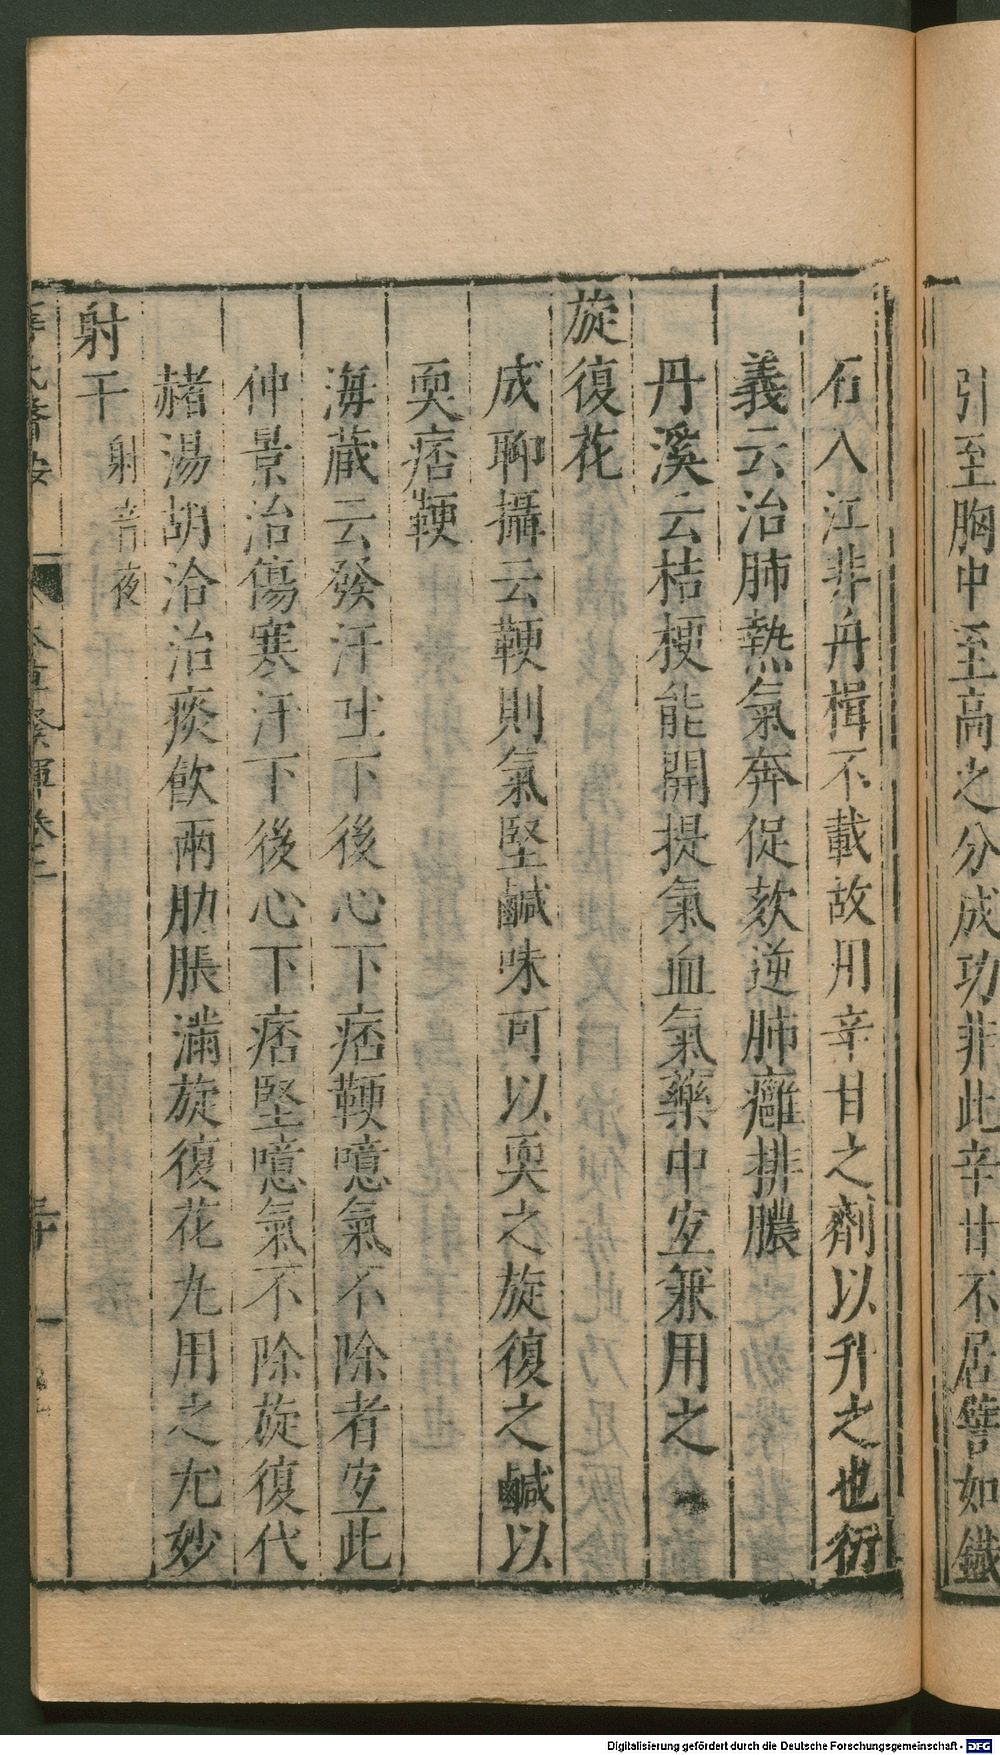 引至胸中至高之分成功非此辛甘不居譬如鐵
石入江非舟楫不載故用辛甘之劑以升之也衍
義云治肺熱氣奔促欬逆肺癰排膿
丹溪云桔梗能開提氣血氣藥中宐兼用之
旋復花
成聊攝云鞕則氣堅鹹味可以耎之旋復之鹹以
耎痞鞕
海藏云發汗吐下後心下痞鞕噫氣不除者宐此
仲景治傷寒汗下後心下痞堅噫氣不除旋復代
赭湯胡洽治痰飲兩肋脹滿旋復花丸用之尤妙
射干 射音夜
氏醫案 本草發揮卷二 三十
Digitalisierung gefördert durch die Deutsche Forschungsgemeinschaft - DFG